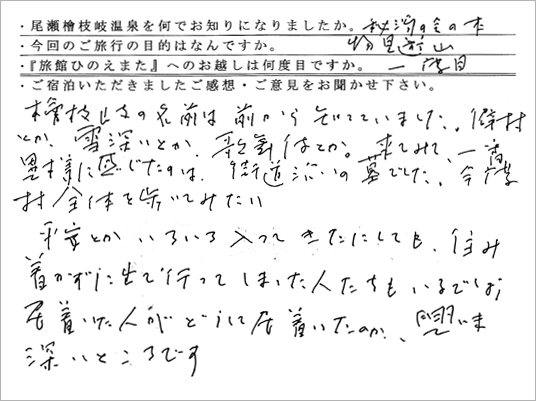 ・尾瀬檜枝岐温泉を何でお知りになりましたか。秘湯の会の本
・今回のご旅行の目的はなんですか。 物見遊山
・『旅館ひのえまた』へのお越しは何度目ですか。 一度目
・ご宿泊いただきましたご感想・ご意見をお聞かせ下さい。
檜枝岐の名前は前から知っていました。僻村
とか、雪深いとか、歌舞伎とか。来てみて、一番
異様に感じたのは、街道沿いの墓でした。今度
村全体を歩いてみたい
平家とかいろいろ入ってきたにしても、住み
着かずに出て行ってしまった人たちもいるでしょう
居着いた人がどうして居着いたのか、興味
深いところです